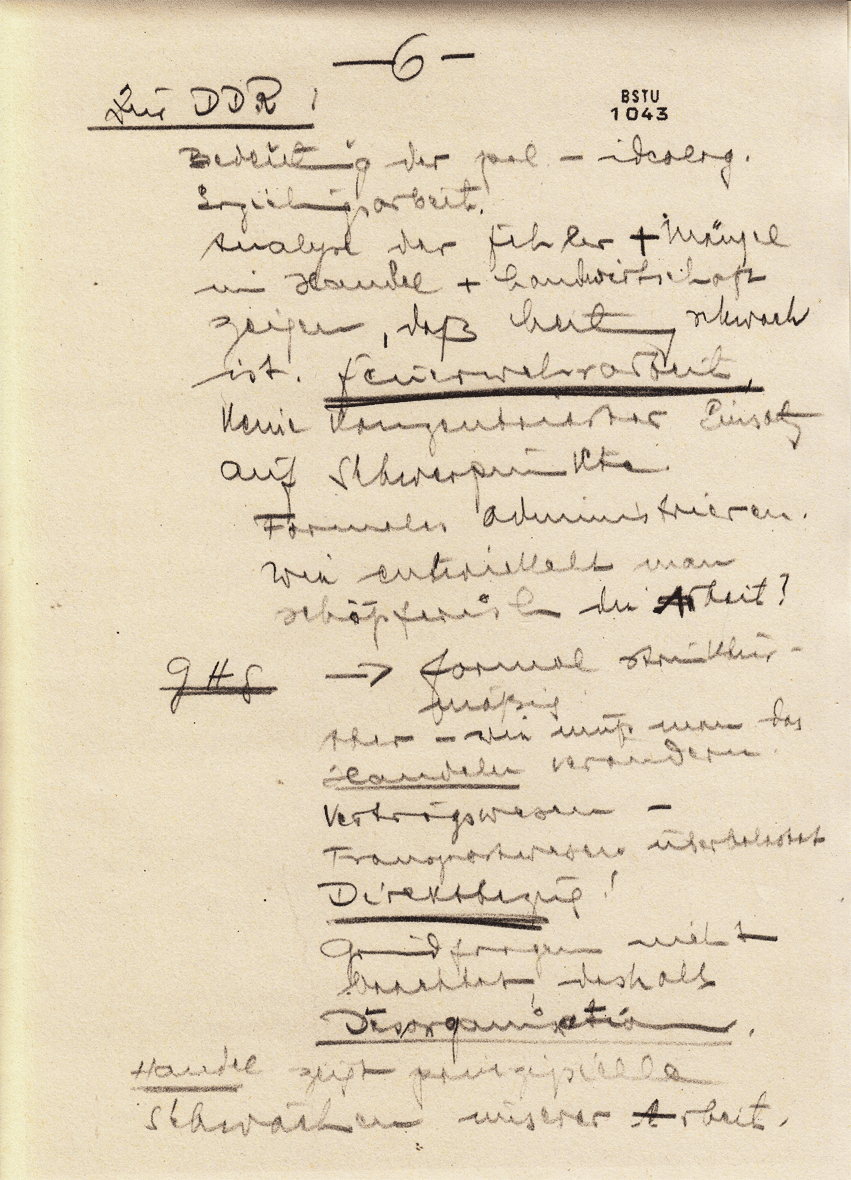 —6—
Zur DDR!
BSTU
1043
Bedeutung der pol – ideolog.
Erziehungsarbeit.
Analyse der Fehler + Mängel
im Handel + Landwirtschaft
zeigen, daß schwach
ist. Feuerwehrarbeit,
Keine konzentrierter Einsatz
auf Schwerpunkte.
Formales administrieren.
Wie entwickelt man
schöpferisch die Arbeit?
GHG → formal struktur-
mäßig
aber – wie muß man das
Handeln verändern
Vertragswesen –
Transportwesen überbelastet
Direktbezug!
Grundfragen nicht
beachtet, deshalb
Desorganisation.
Handel zeigt prinzipielle
Schwächen unserer Arbeit.